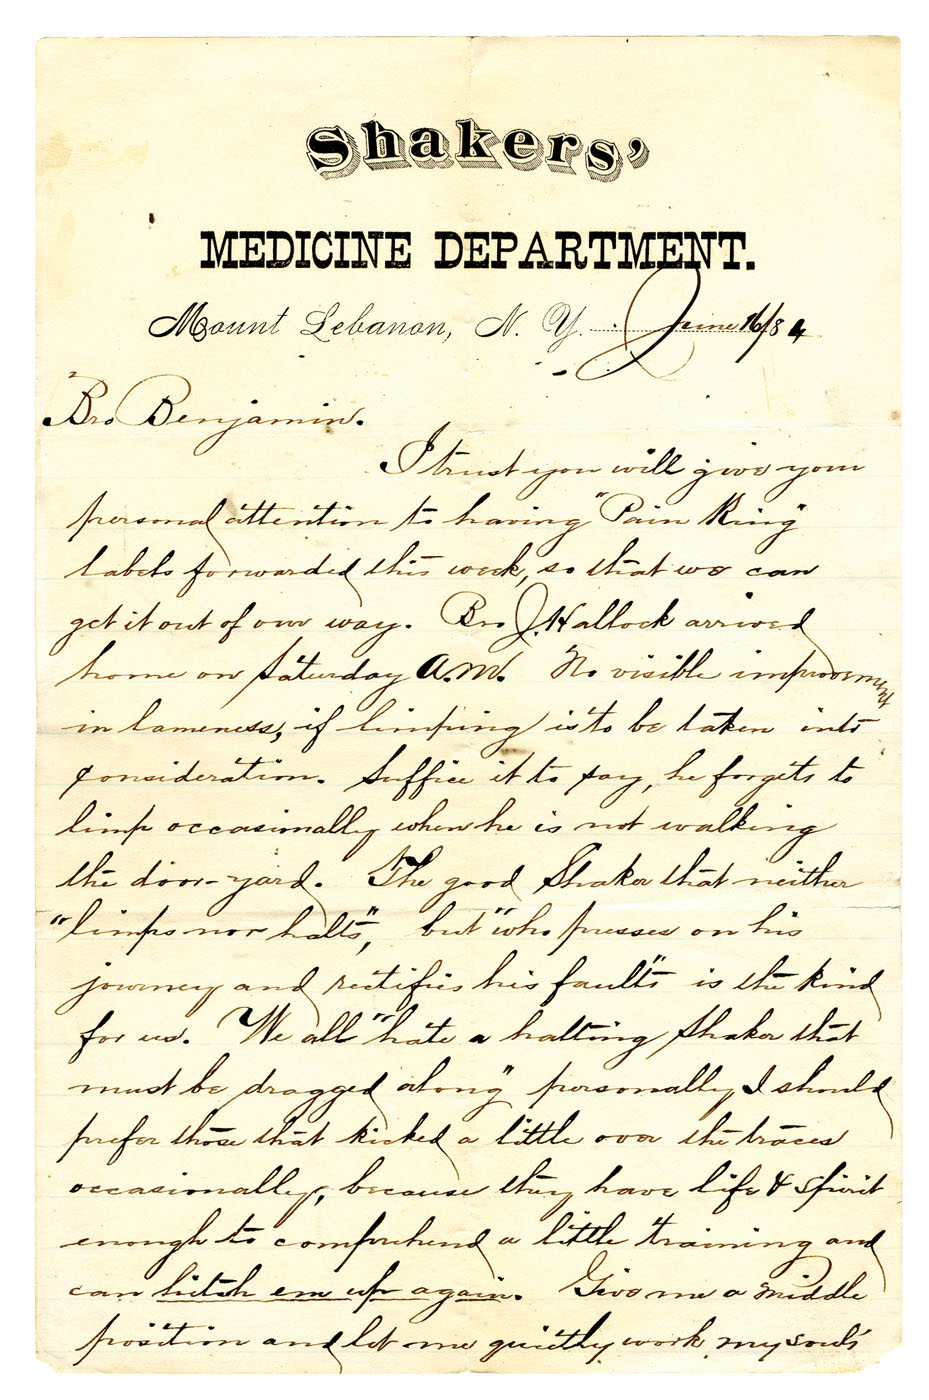 Shakers'
MEDICINE DEPARTMENT.
Mount Lebanon, N. Y. June 16/84
Bro Benjamin.
I trust you will give your
personal attention to having "Pain King"
labels forwarded this week, so that we can
get it out of our way. Bro J. Hallock arrived
home on Saturday A.M. No visible improvement
in lameness, if limping is to be taken into
consideration. Suffice it to say, he forgets to
limp occasionally when he is not walking
the door-yard. The good Shaker that neither
"limps nor halts", but "who presses on his
journey and rectifies his faults" is the kind
for us. We all "hate a halting Shaker that
must be dragged along" personally I should
prefer those that kicked a little over the traces
occasionally, because they have life & spirit
enough to comprehend a little training and
can hitch em up again. Give me a middle
position and let me quietly work my souls'